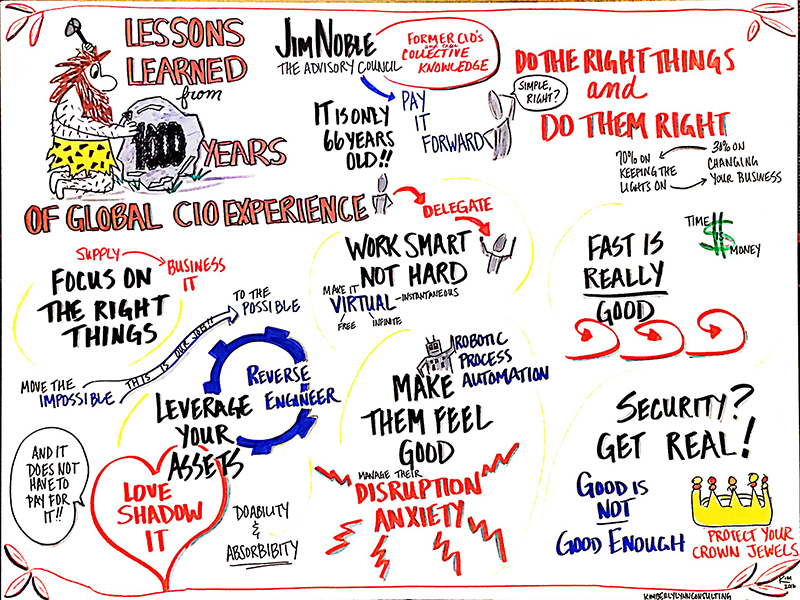 LESSONS
LEARNED
from
1000
YEARS
OF GLOBAL CIO EXPERIENCE
JIM NOBLE
THE ADVISORY COUNCIL
FORMER CIO'S
COLLECTIVE
KNOWLEDGE
PAY
IT
FORWARD
IT IS ONLY
66 YEARS
OLD!!
SIMPLE,
RIGHT?
DO THE RIGHT THINGS
and
DO THEM RIGHT
70% ON
KEEPING THE
LIGHTS ON
30% ON
CHANGING
YOUR BUSINESS
SUPPLY
BUSINESS
IT
FOCUS ON
THE RIGHT
THINGS
MOVE THE
IMPOSSIBLE
THIS IS OUR JOB!!
TO THE
POSSIBLE
DELEGATE
WORK SMART
NOT HARD
MAKE IT
VIRTUAL
INSTANTANEOUS
FREE
INFINITE
FAST IS
REALLY
GOOD
TIME
IS
MONEY
REVERSE
ENGINEER
LEVERAGE
YOUR
ASSETS
AND IT
DOES NOT
HAVE TO
PAY FOR
IT!!
LOVE
SHADOW
IT
DOABILITY
&
ABSORBIBITY
ROBOTIC
PROCESS
AUTOMATION
MAKE
THEM FEEL
GOOD
MANAGE THEIR
DISRUPTION
ANXIETY
SECURITY?
GET REAL!
GOOD IS
NOT
GOOD ENOUGH
PROTECT YOUR
CROWN JEWELS
KIM
2016
KIMBERLYLYNNCONSULTING